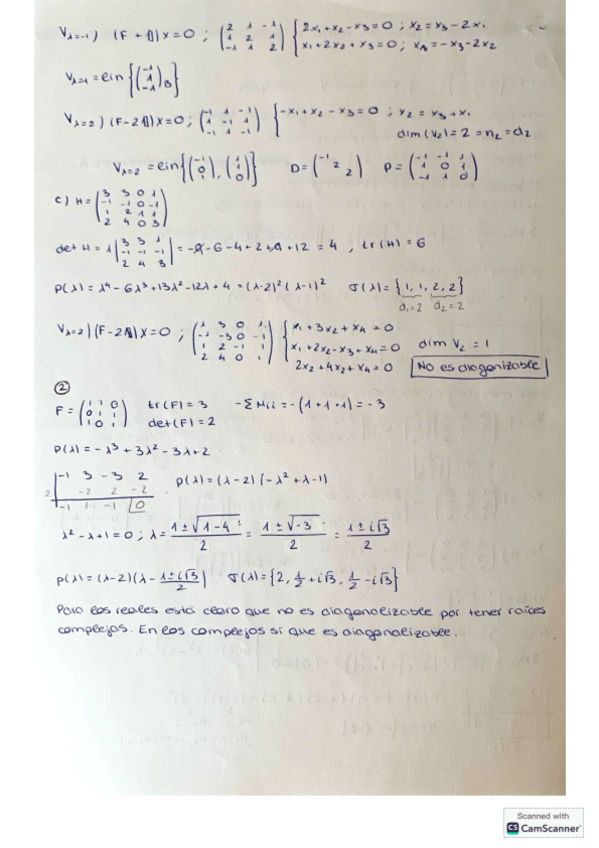 Vλ=-1) (F + 1)X=0 ; (2 1 -1 / 1 2 1 / -1 1 2) { 2x₁+x₂-x₃=0 ; x₂=x₃-2x₁
x₁+2x₂+x₃=0 ; x₁=-x₃-2x₂
Vλ=-1 = ein{(-1 1 -1)}
Vλ=2) (F-21)X=0 ; (-1 1 -1 / 1 -1 1 / -1 1 -1) { -x₁+x₂-x₃=0 ; x₂=x₃+x₁
dim(V₂)=2=n₂=d₂
Vλ=2 = ein{(-1 0 1), (1 1 0)} D=(-1 2 2) P=(-1 -1 1 / 1 0 1 / -1 1 0)
c) H=(3 3 0 1 / -1 -1 0 -1 / 1 2 1 1 / 2 4 0 3)
det H = 1 |3 3 1 / -1 -1 -1 / 2 4 3| = -9-6-4+2+9+12 = 4 ; tr(H)=6
P(λ)= λ⁴-6λ³+13λ²-12λ+4 = (λ-2)²(λ-1)² σ(λ)={1,1,2,2}
d₁=2 d₂=2
Vλ=2) (F-21)X=0 ; (1 3 0 1 / -1 -3 0 -1 / 1 2 -1 1 / 2 4 0 1) { x₁+3x₂+x₄=0
x₁+2x₂-x₃+x₄=0 dim V₂ = 1
2x₂+4x₂+x₄=0 No es diagonizable
②
F=(1 1 0 / 0 1 1 / 1 0 1) tr(F)=3 -ΣMii=-(1+1+1)=-3
det(F)=2
P(λ)=-λ³+3λ²-3λ+2
-1 3 -3 2 p(λ)=(λ-2)(-λ²+λ-1)
2 -2 2 -2
-1 1 -1 0
λ²-λ+1=0 ; λ= 1±√1-4 / 2 = 1±√-3 / 2 = 1±i√3 / 2
p(λ)=(λ-2)(λ- 1±i√3 / 2) σ(λ)={2, 1/2+i√3, 1/2-i√3}
Para los reales está claro que no es diagonalizable por tener raíces
complejos. En los complejos sí que es diagonalizable.
Scanned with
CS CamScanner